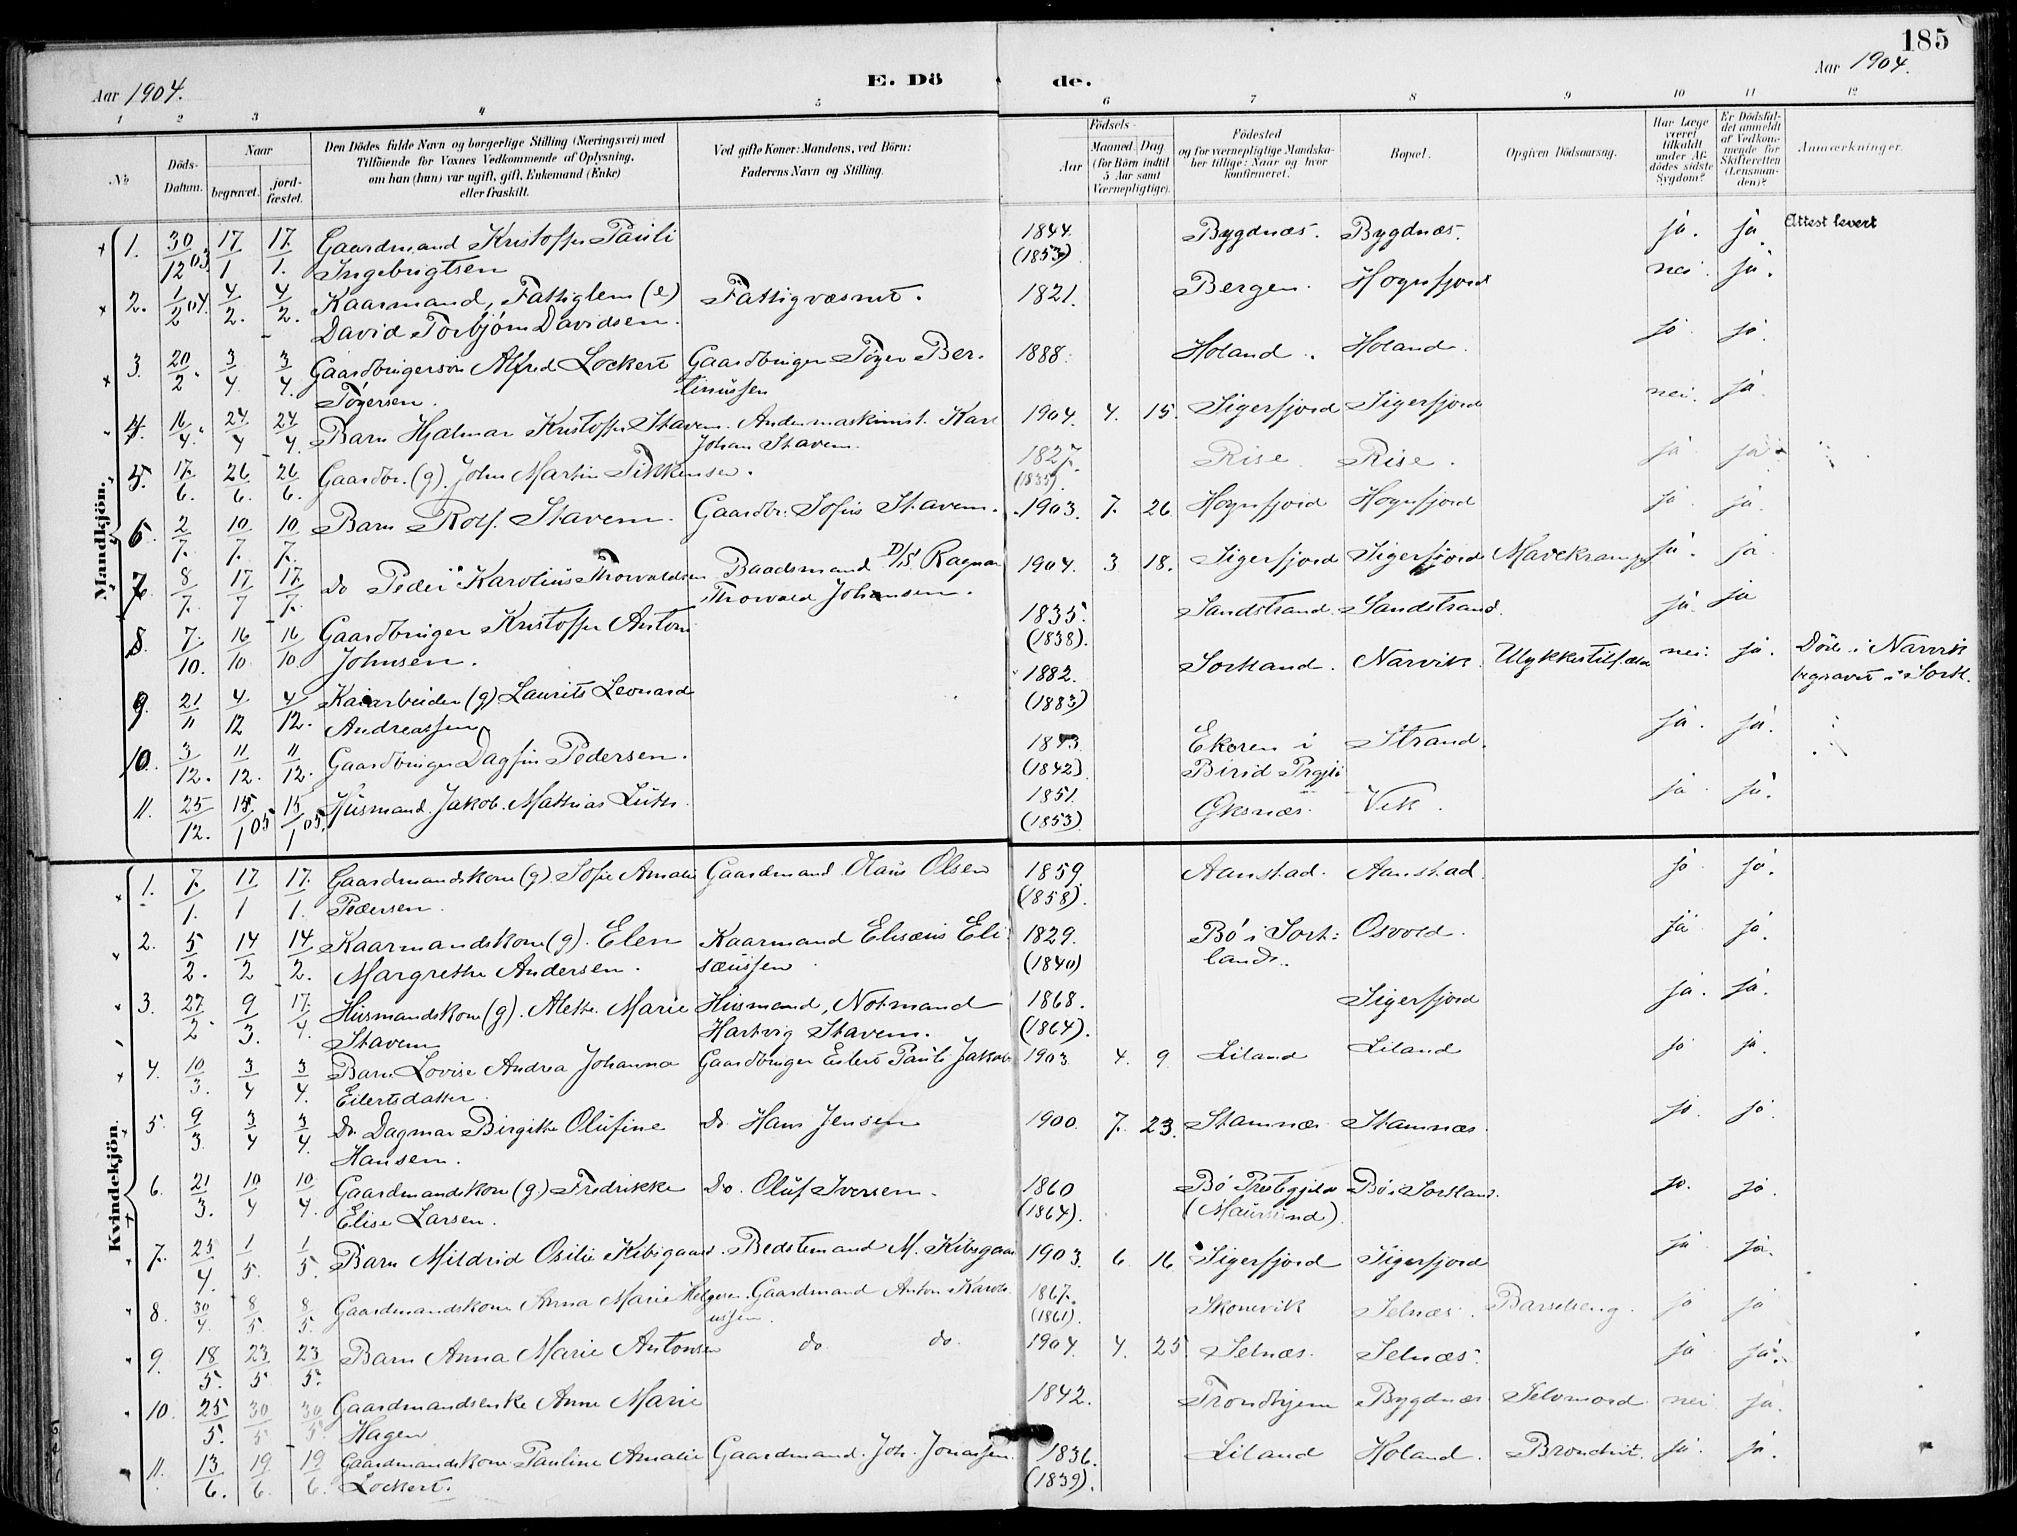 185
Aar 1904.
E. Dö de.
Aar 1904.
1 2 3 4 5 6 7 8 9 10 11 12
No
Döds-Datum.
Naar
begravet.
jord-fæstet.
Den Dödes fulde Navn og borgerlige Stilling (Næringsvei) med
Tilföiende for Voxnes Vedkommende af Oplysning,
om han (hun) var ugift, gift, Enkemand (Enke)
eller fraskilt.
Ved gifte Koner: Mandens, ved Börn:
Faderens Navn og Stilling.
Födsels-
Aar
Maaned. Dag
(for Börn indtil
5 Aar samt
Værnepligtige).
Födested
og for værnepligtige Mandska-
ber tillige: Naar og hvor
konfirmeret.
Bopæl.
Opgiven Dödsaarsag.
Har Læge
været
tilkaldt
under Af-
dödes sidste
Sygdom?
Er Dödsfal-
det anmeldt
af Vedkom-
mende for
Skifteretten
(Lensman-
den)?
Anmærkninger.
Mandkjön.
1. 30/12 03 17/1 17/1. Gaardmand Kristoffer Pauli 1844 Bygdnæs. Bygdnæs. ja. ja. Attest levert
Ingebrigtsen (1853)
2. 1/2 04. 4/2. 4/2. Kaarmand, Fattiglem (e) Fattigvæsnet. 1821. Bergen. Hognfjord nei. ja.
David Torbjørn Davidsen.
3. 20/2. 3/4 3/4. Gaardbrugersøn Alfred Lockert Gaardbruger Tøger Ber- 1888. Holand. Holand. ja. ja.
Tøgersen. tinussen
4. 16/4. 24/4 24/4. Barn Hjalmar Kristoffer Stavem. Andenmaskinist Karl 1904. 4. 15. Sigerfjord Sigerfjord nei. ja.
Johan Stavem.
5. 17/6. 26/6. 26/6. Gaardbr. (g). John Martin Sikkensen. 1827. Rise Rise. ja ja
(1835).
6. 2/7. 10/7. 10/7. Barn Rolf Stavem. Gaardbr. Sofus Stavem. 1903. 7. 26 Hognfjord Hognfjord ja. ja.
7. 8/7. 17/7 17/7. Do Peder Karolius Thorvaldsen Baadsmand D/S Ragnar 1904. 3 18. Sigerfjord Sigerfjord Mavekrampe ja. ja
Thorvald Johansen.
8. 7/10. 16/10. 16/10. Gaardbruger Kristoffer Anton 1835. Sandstrand. Sandstrand. ja. ja
Johnsen. (1838).
9. 21/11 4/12 4/12. Kaiarbeider (g) Laurits Leonard 1882. Sortland. Narvik. Ulykkestilfælde nei. ja. Døde i Narvik
Andreassen (1883) begravet i Sortl.
10. 3/12. 11/12. 11/12. Gaardbruger Dagfin Pedersen. 1843 Ekeren i Strand. ja. ja.
(1842). Birid Prgjld
11. 25/12. 15/1 05 15/1 05. Husmand Jakob Mathias Luth. 1851. Øksnæs. Vik. ja ja.
(1853).
Kvindekjön.
1. 7/1. 17/1 17/1. Gaardmandskone (g). Sofie Amalie Gaardmand Olaus Olsen 1859. Aanstad. Aanstad. ja. ja.
Pedersen. (1858).
2. 5/2. 14/2 14/2. Kaarmandskone (g). Elen Kaarmand Elisæus Eli- 1829. Bø i Sort- Osvold. ja ja.
Margrethe Andersen. sæussen. (1840) land.
3. 27/2 9/3. 17/4. Husmandskone (g). Alethe Marie Husmand, Notmand 1868. Sigerfjord ja. ja.
Stavem Hartvig Stavem. (1864).
4. 10/3. 3/4 3/4. Barn Lovise Andrea Johanna Gaardbruger Eilert Pauli Jakob 1903 4. 9. Liland Liland ja. ja.
Eilertsdatter.
5. 9/3. 3/4 3/4. Do Dagmar Birgitte Olufine Do. Hans Jensen 1900. 7. 23. Stamnæs Stamnæs. ja. ja.
Hansen.
6. 21/3. 10/4 10/4. Gaardmandskone (g.) Fredrikke Do. Oluf Iversen. 1860 Bø Prestegjeld Bø i Sortland. ja. ja.
Elise Larsen. (1864). (Maursund).
7. 25/4. 1/5. 1/5. Barn Mildrid Osilie Kibsgaard. Bedstemand M. Kibsgaard 1903. 6. 16 Sigerfjord Sigerfjord ja ja.
8. 30/4. 8/5. 8/5. Gaardmandskone Anna Marie Helgesen. Gaardmand Anton Karol- 1867. Skonevik Selnæs. Barselseng. ja ja
iussen. (1861).
9. 18/5. 23/5. 23/5. Barn Anna Marie Antonsen do do. 1904. 4. 25 Selnæs. Selnæs. ja ja.
10. 25/5. 30/5 30/5. Gaardmandsenke Anne Marie 1842. Trondhjem Bygdnæs Selvmord. nei ja.
Hagen
11. 13/6. 19/6. 19/6. Gaardmandskone Pauline Amalie Gaardmand. Joh. Jonassen. 1836. Liland Holand. Bronchit. ja. ja.
Lockert. (1839).